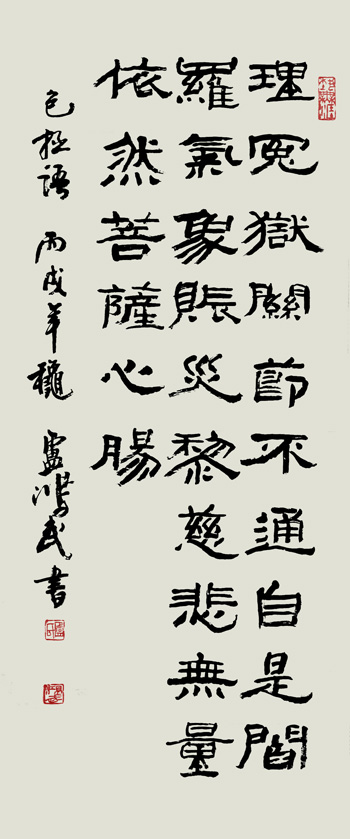 理冤獄關節不通自是閻
羅氣象賬災黎慈悲無量
依然菩薩心腸
包拯語 丙戌年穐 盧鴻武書